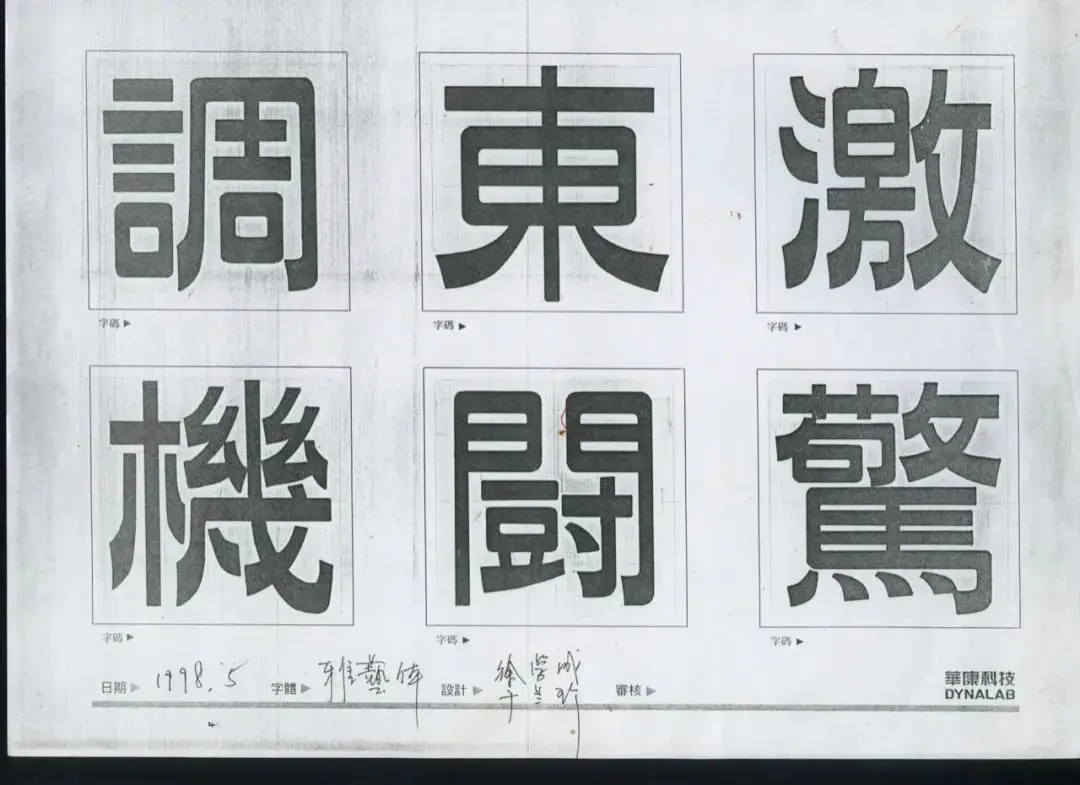 調 東 激
字碼▶ 字碼▶ 字碼▶
機 闘 驚
字碼▶ 字碼▶ 字碼▶
日期▶ 1998.5 字體▶ 雅藝体 設計▶ 徐学成 審核▶
華康科技
DYNALAB